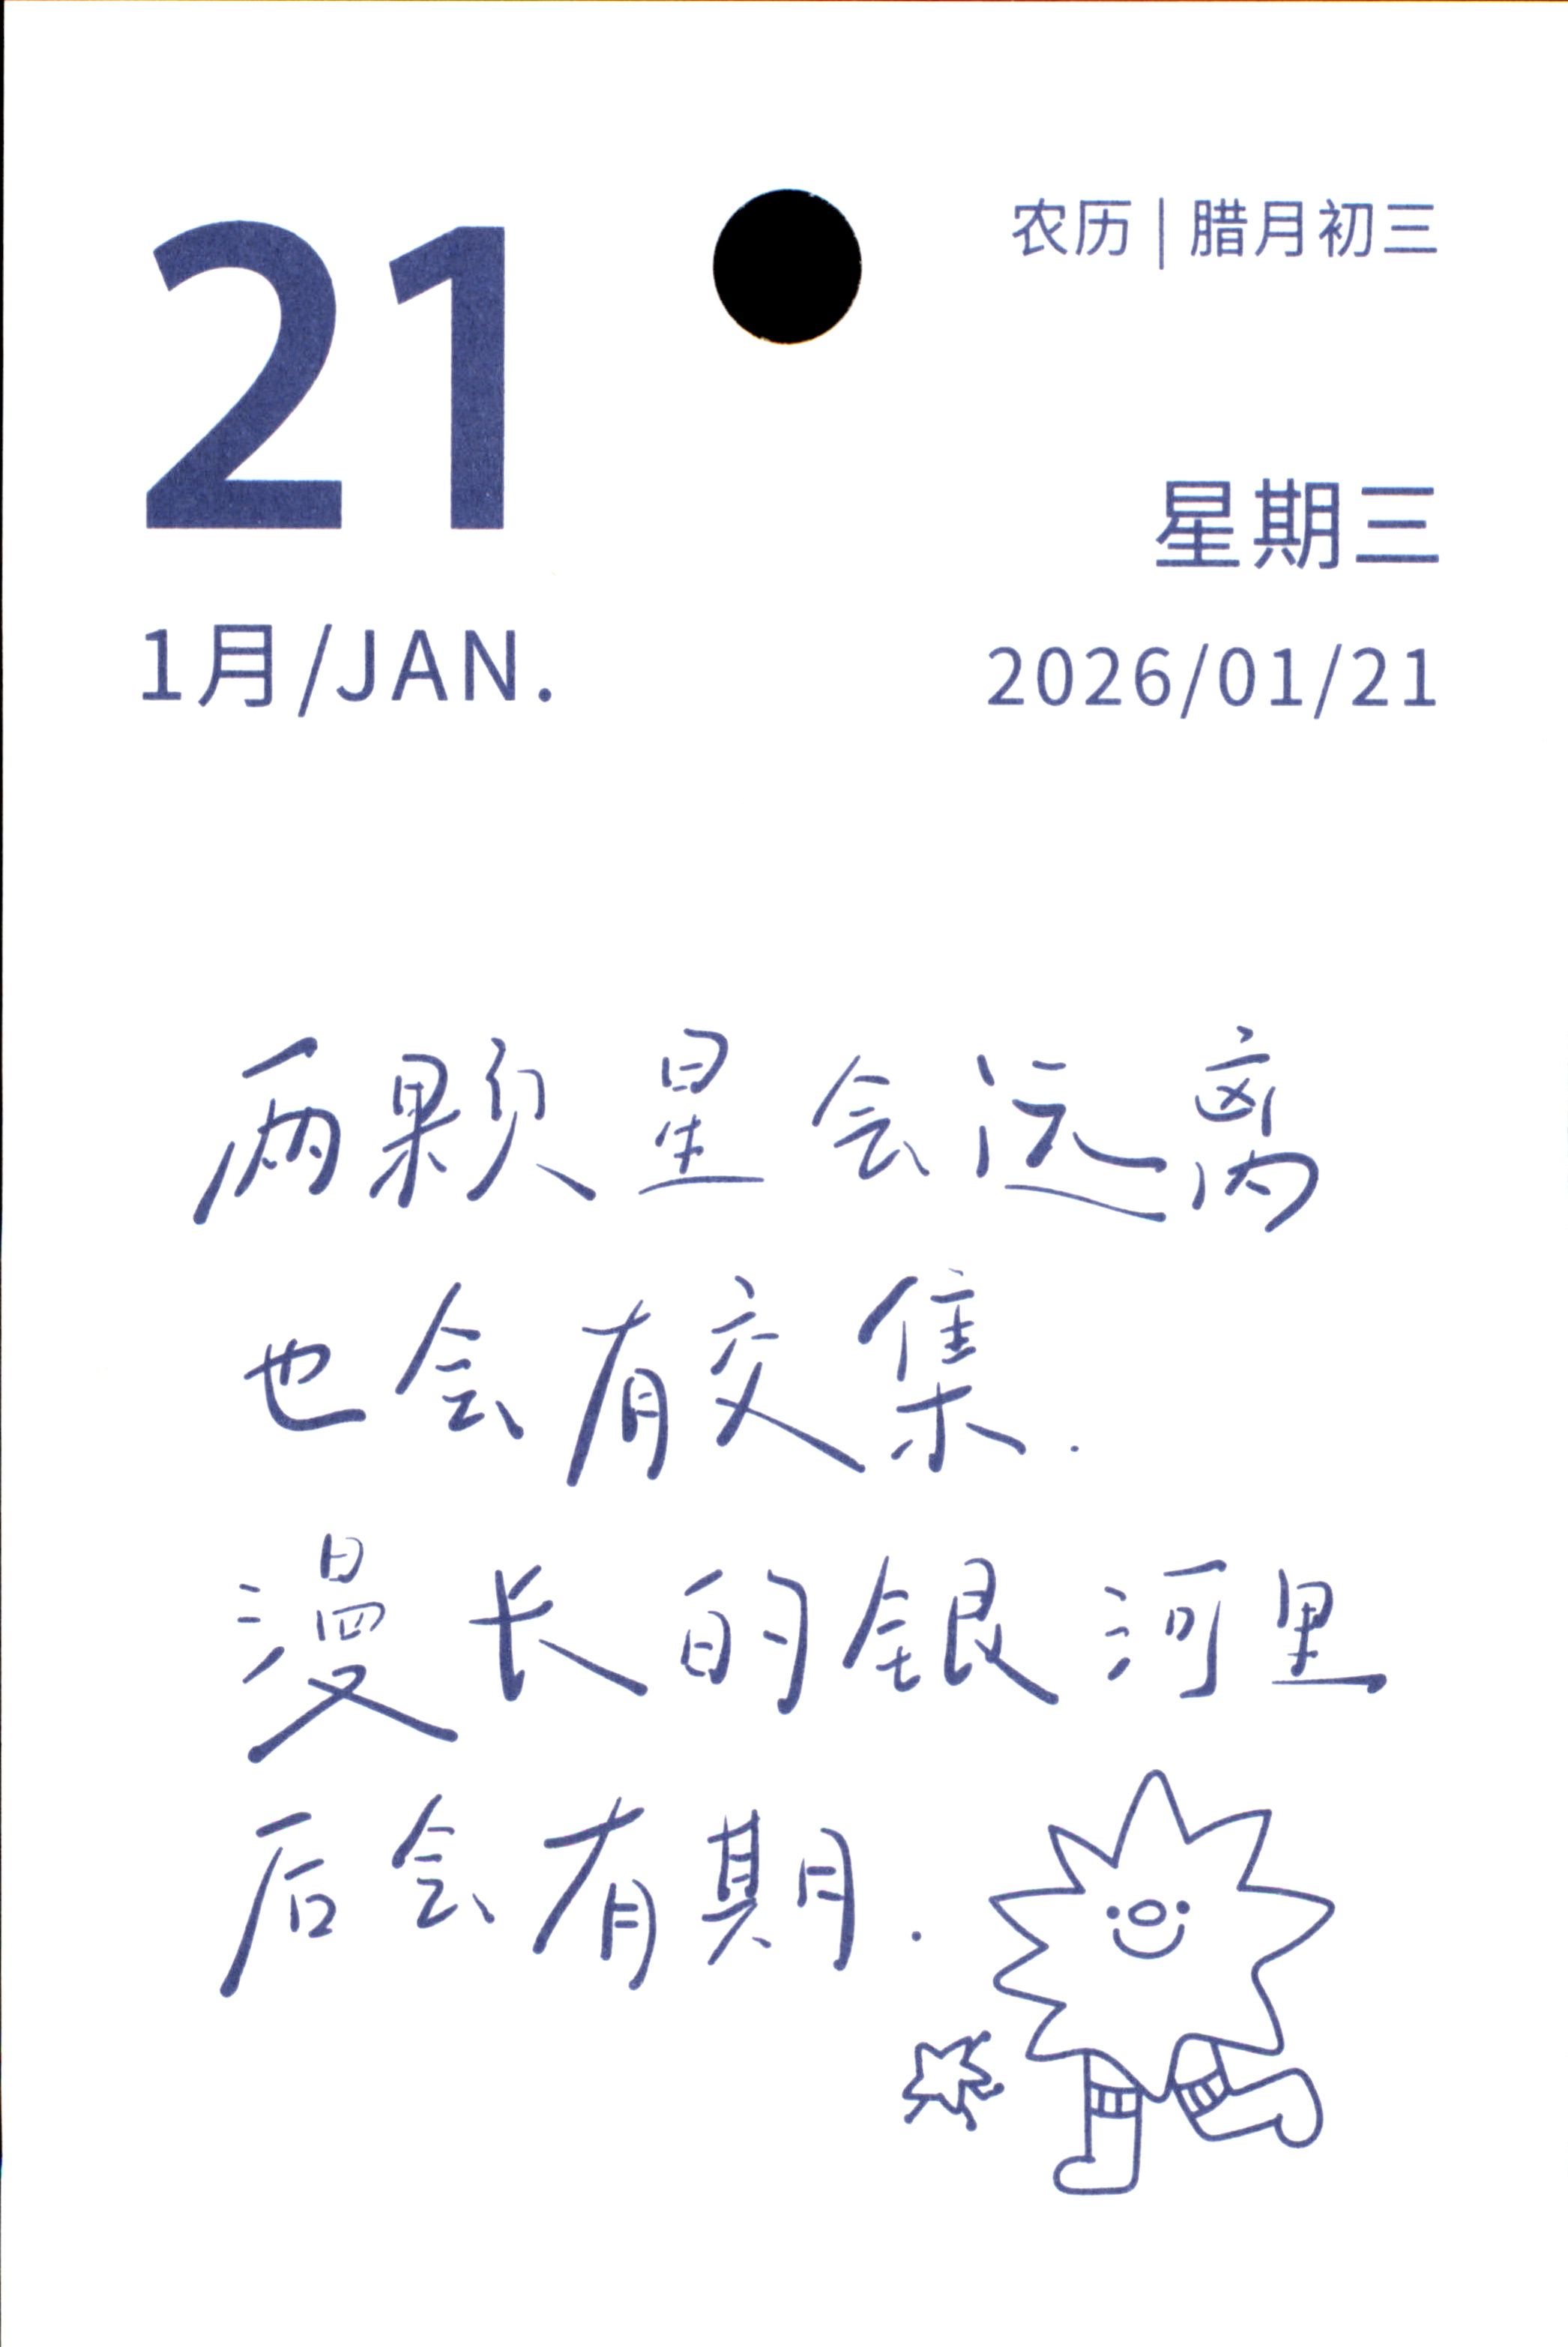 21
1月/JAN.
农历|腊月初三
星期三
2026/01/21
两颗星会远离
也会有交集.
漫长的银河里
后会有期.